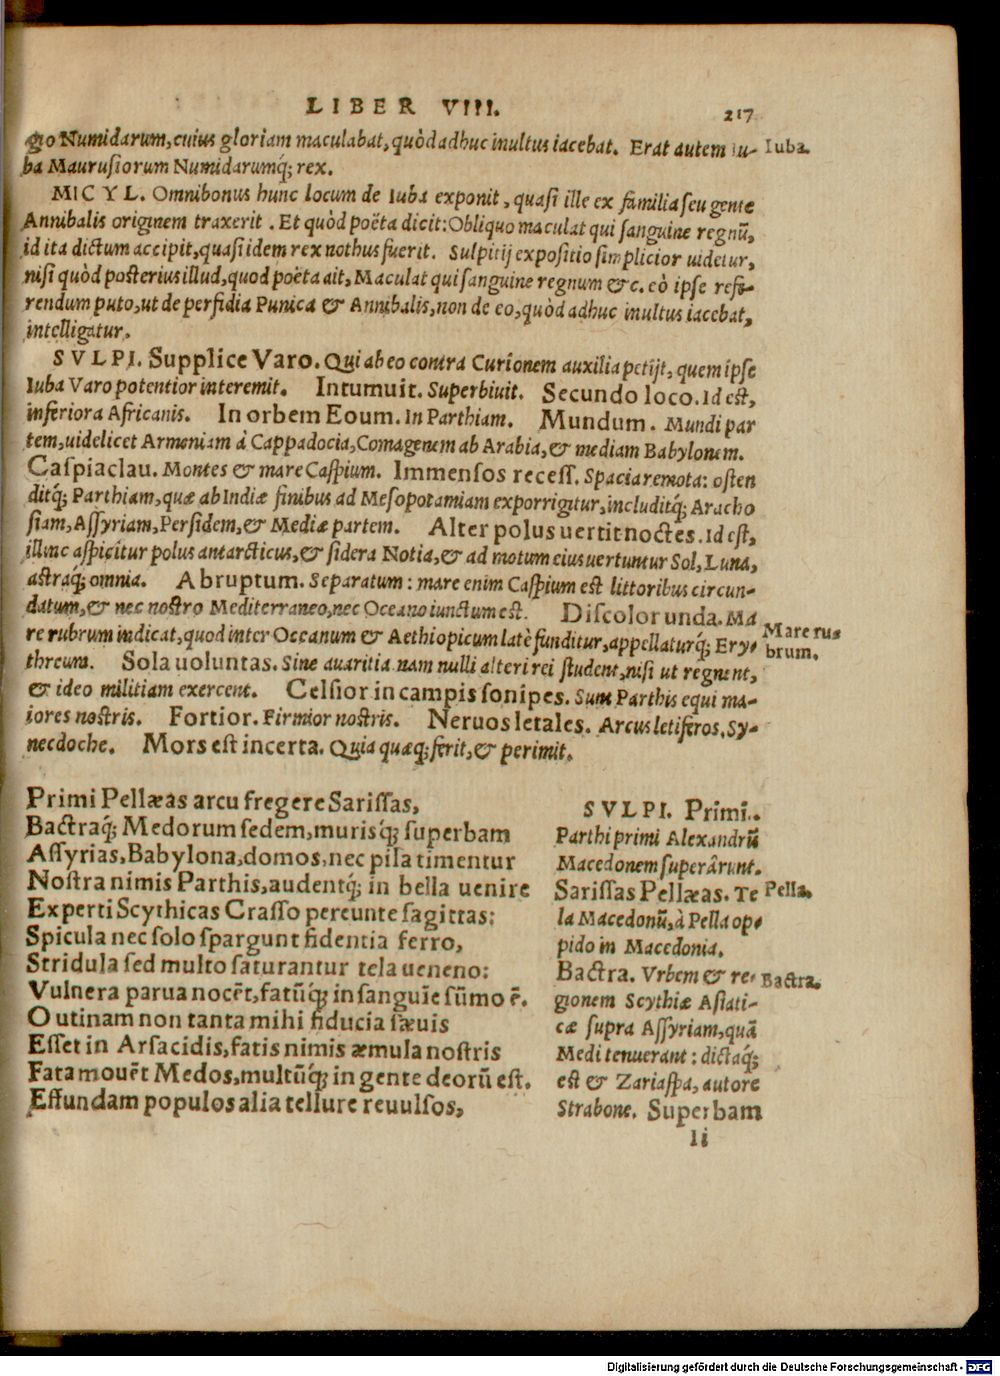 LIBER VIII.
217
gio Numidarum, cuius gloriam maculabat, quòd adhuc inultus iacebat. Erat autem Iu-
Iuba.
ba Maurusiorum Numidarumq́; rex.
MICYL. Omnibonus hunc locum de Iuba exponit, quasi ille ex familia seu gente
Annibalis originem traxerit. Et quòd poëta dicit: Obliquo maculat qui sanguine regnũ,
id ita dictum accipit, quasi idem rex nothus fuerit. Sulpitij expositio simplicior uidetur,
nisi quòd posterius illud, quod poëta ait, Maculat qui sanguine regnum &c. eò ipse refe-
rendum puto, ut de perfidia Punica & Annibalis, non de eo, quòd adhuc inultus iacebat,
intelligatur.
SVLPI. Supplice Varo. Qui ab eo contra Curionem auxilia petijt, quem ipse
Iuba Varo potentior interemit. Intumuit. Superbiuit. Secundo loco. Id est,
inferiora Africanis. In orbem Eoum. In Parthiam. Mundum. Mundi par
tem, uidelicet Armeniam à Cappadocia, Comagenem ab Arabia, & mediam Babylonem.
Caspiaclau. Montes & mare Caspium. Immensos recess. Spacia remota: osten
ditq́; Parthiam, quæ ab Indiæ finibus ad Mesopotamiam exporrigitur, includitq́; Aracho
siam, Assyriam, Persidem, & Mediæ partem. Alter polus uertit noctes. Id est,
illinc aspicitur polus antarcticus, & sidera Notia, & ad motum eius uertuntur Sol, Luna,
astraq́; omnia. Abruptum. Separatum: mare enim Caspium est littoribus circun-
datum, & nec nostro Mediterraneo, nec Oceano iunctum est. Discolor unda. Ma
re rubrum indicat, quod inter Oceanum & Aethiopicum latè funditur, appellaturq́; Ery-
Mare ru-
brum.
threum. Sola uoluntas. Sine auaritia nam nulli alteri rei student, nisi ut regnent,
& ideo militiam exercent. Celsior in campis sonipes. Sunt Parthis equi ma-
iores nostris. Fortior. Firmior nostris. Neruos letales. Arcus letiferos, Sy-
necdoche. Mors est incerta. Quia quaq; ferit, & perimit.
Primi Pellæas arcu fregere Sarissas,
Bactraq́; Medorum sedem, murisq́; superbam
Assyrias, Babylona, domos, nec pila timentur
Nostra nimis Parthis, audentq́; in bella uenire
Experti Scythicas Crasso pereunte sagittas:
Spicula nec solo spargunt fidentia ferro,
Stridula sed multo saturantur tela ueneno:
Vulnera parua nocẽt, fatũq́; in sanguĩe sũmo ẽ.
O utinam non tanta mihi fiducia sæuis
Esset in Arsacidis, fatis nimis æmula nostris
Fata mouẽt Medos, multũq́; in gente deorũ est.
Effundam populos alia tellure reuulsos,
SVLPI. Primi.
Parthi primi Alexandrũ
Macedonem superârunt.
Sarissas Pellæas. Te
Pella.
la Macedonũ, à Pella op-
pido in Macedonia.
Bactra. Vrbem & re-
Bactra.
gionem Scythiæ Asiati-
cæ supra Assyriam, quã
Medi tenuerant: dictaq́;
est & Zariaspa, autore
Strabone. Superbam
Ii
Digitalisierung gefördert durch die Deutsche Forschungsgemeinschaft - DFG